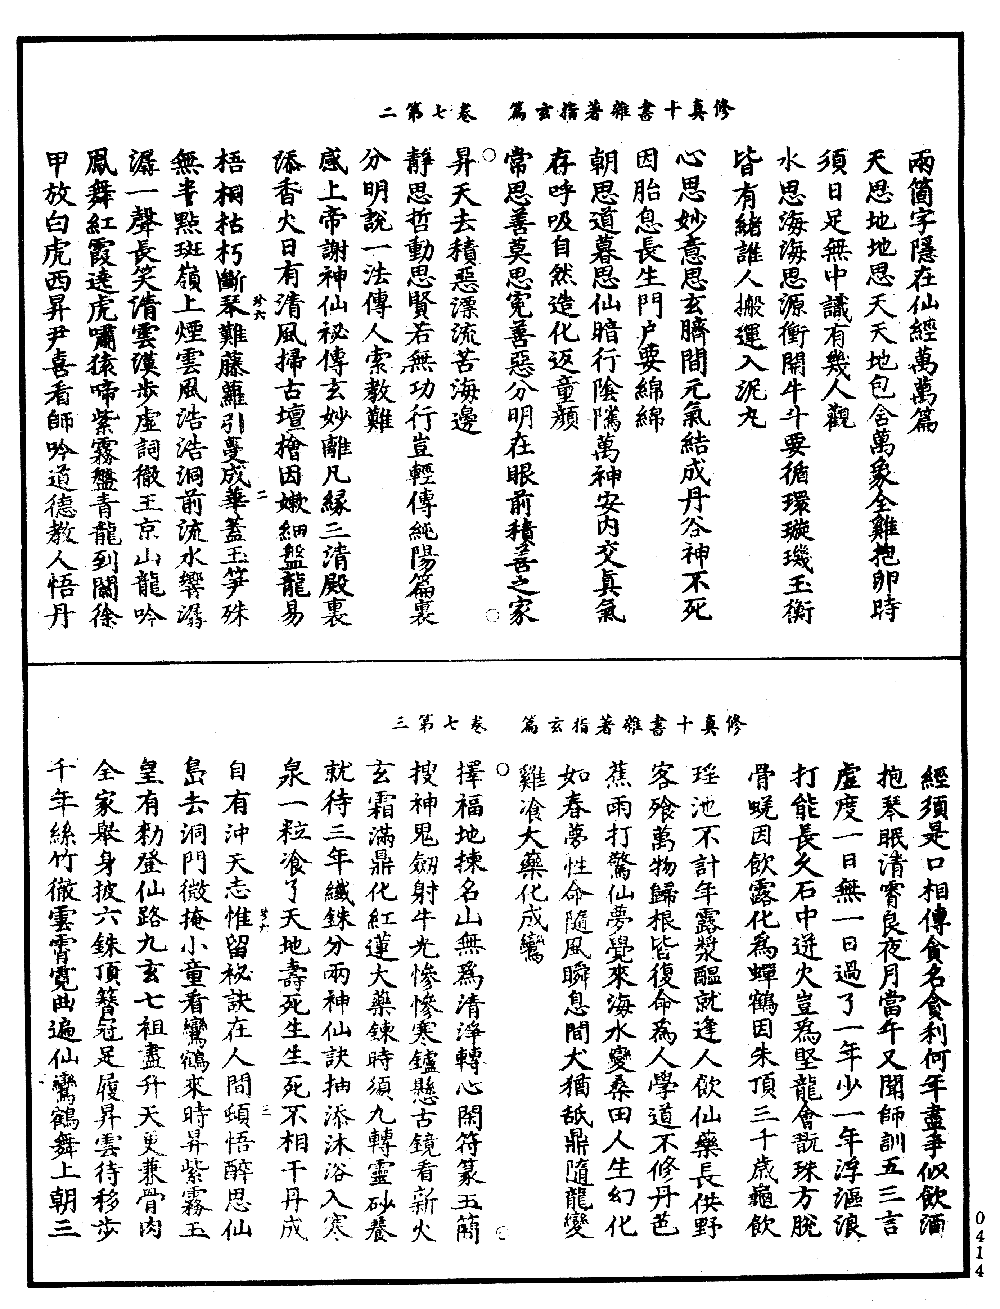 修真十書雜著指玄篇　卷七第二
兩箇字隱在仙經萬萬篇
天思地地思天天地包含萬象全雞抱卵時
須日足無中議有幾人觀
水思海海思源衝開牛斗要循環璇璣玉衡
皆有緒誰人搬運入泥丸
心思妙意思玄臍間元氣結成丹谷神不死
因胎息長生門戶要綿綿
朝思道暮思仙暗行陰隲萬神安內交真氣
存呼吸自然造化返童顏
常思善莫思寃善惡分明在眼前積善之家
昇天去積惡漂流苦海邊
靜思哲動思賢若無功行豈輕傳純陽篇裏
分明說一法傳人索教難
感上帝謝神仙祕傳玄妙離凡緣三清殿裏
添香火日有清風掃古壇檜因嫩細盤龍易
梧桐枯朽斷琴難藤蘿引蔓成華蓋玉笋殊
珍六
二
無半點斑嶺上煙雲風浩浩洞前流水響潺
潺一聲長笑清雲漢步虛詞徹王京山龍吟
鳳舞紅霞遶虎嘯猿啼紫霧盤青龍到關徐
甲放白虎西昇尹喜看師吟道德教人悟丹
修真十書雜著指玄篇　卷七第三
經須是口相傳貪名貪利何年盡爭似飲酒
抱琴眠清霄良夜月當午又聞師訓五三言
虛度一日無一日過了一年少一年浮漚浪
打能長久石中迸火豈為堅龍會翫珠方脫
骨蜕因飲露化為蟬鶴因朱頂三千歲龜飲
瑤池不計年露漿醞就逢人飲仙藥長供野
客飱萬物歸根皆復命為人學道不修丹芭
蕉雨打驚仙夢覺來海水變桑田人生幻化
如春夢性命隨風瞬息間犬猶舐鼎隨龍變
雞飡大藥化成鸞
擇福地揀名山無為清淨轉心閑符篆五蕳
搜神鬼劔射牛光慘慘寒鑪懸古鏡看新火
玄霜滿鼎化紅蓮大藥鍊時須九轉靈砂養
就待三年纖銖分兩神仙訣抽添沐浴入寒
泉一粒飡了天地壽死生生死不相干丹成
自有沖天志惟留祕訣在人間頓悟醉思仙
三
島去洞門微掩小童看鸞鶴來時昇紫霧玉
皇有勑登仙路九玄七祖盡升天更兼骨肉
全家舉身披六銖頂簪冠足履昇雲待移步
千年絲竹徹雲霄霓曲遍仙鸞鶴舞上朝三
0414